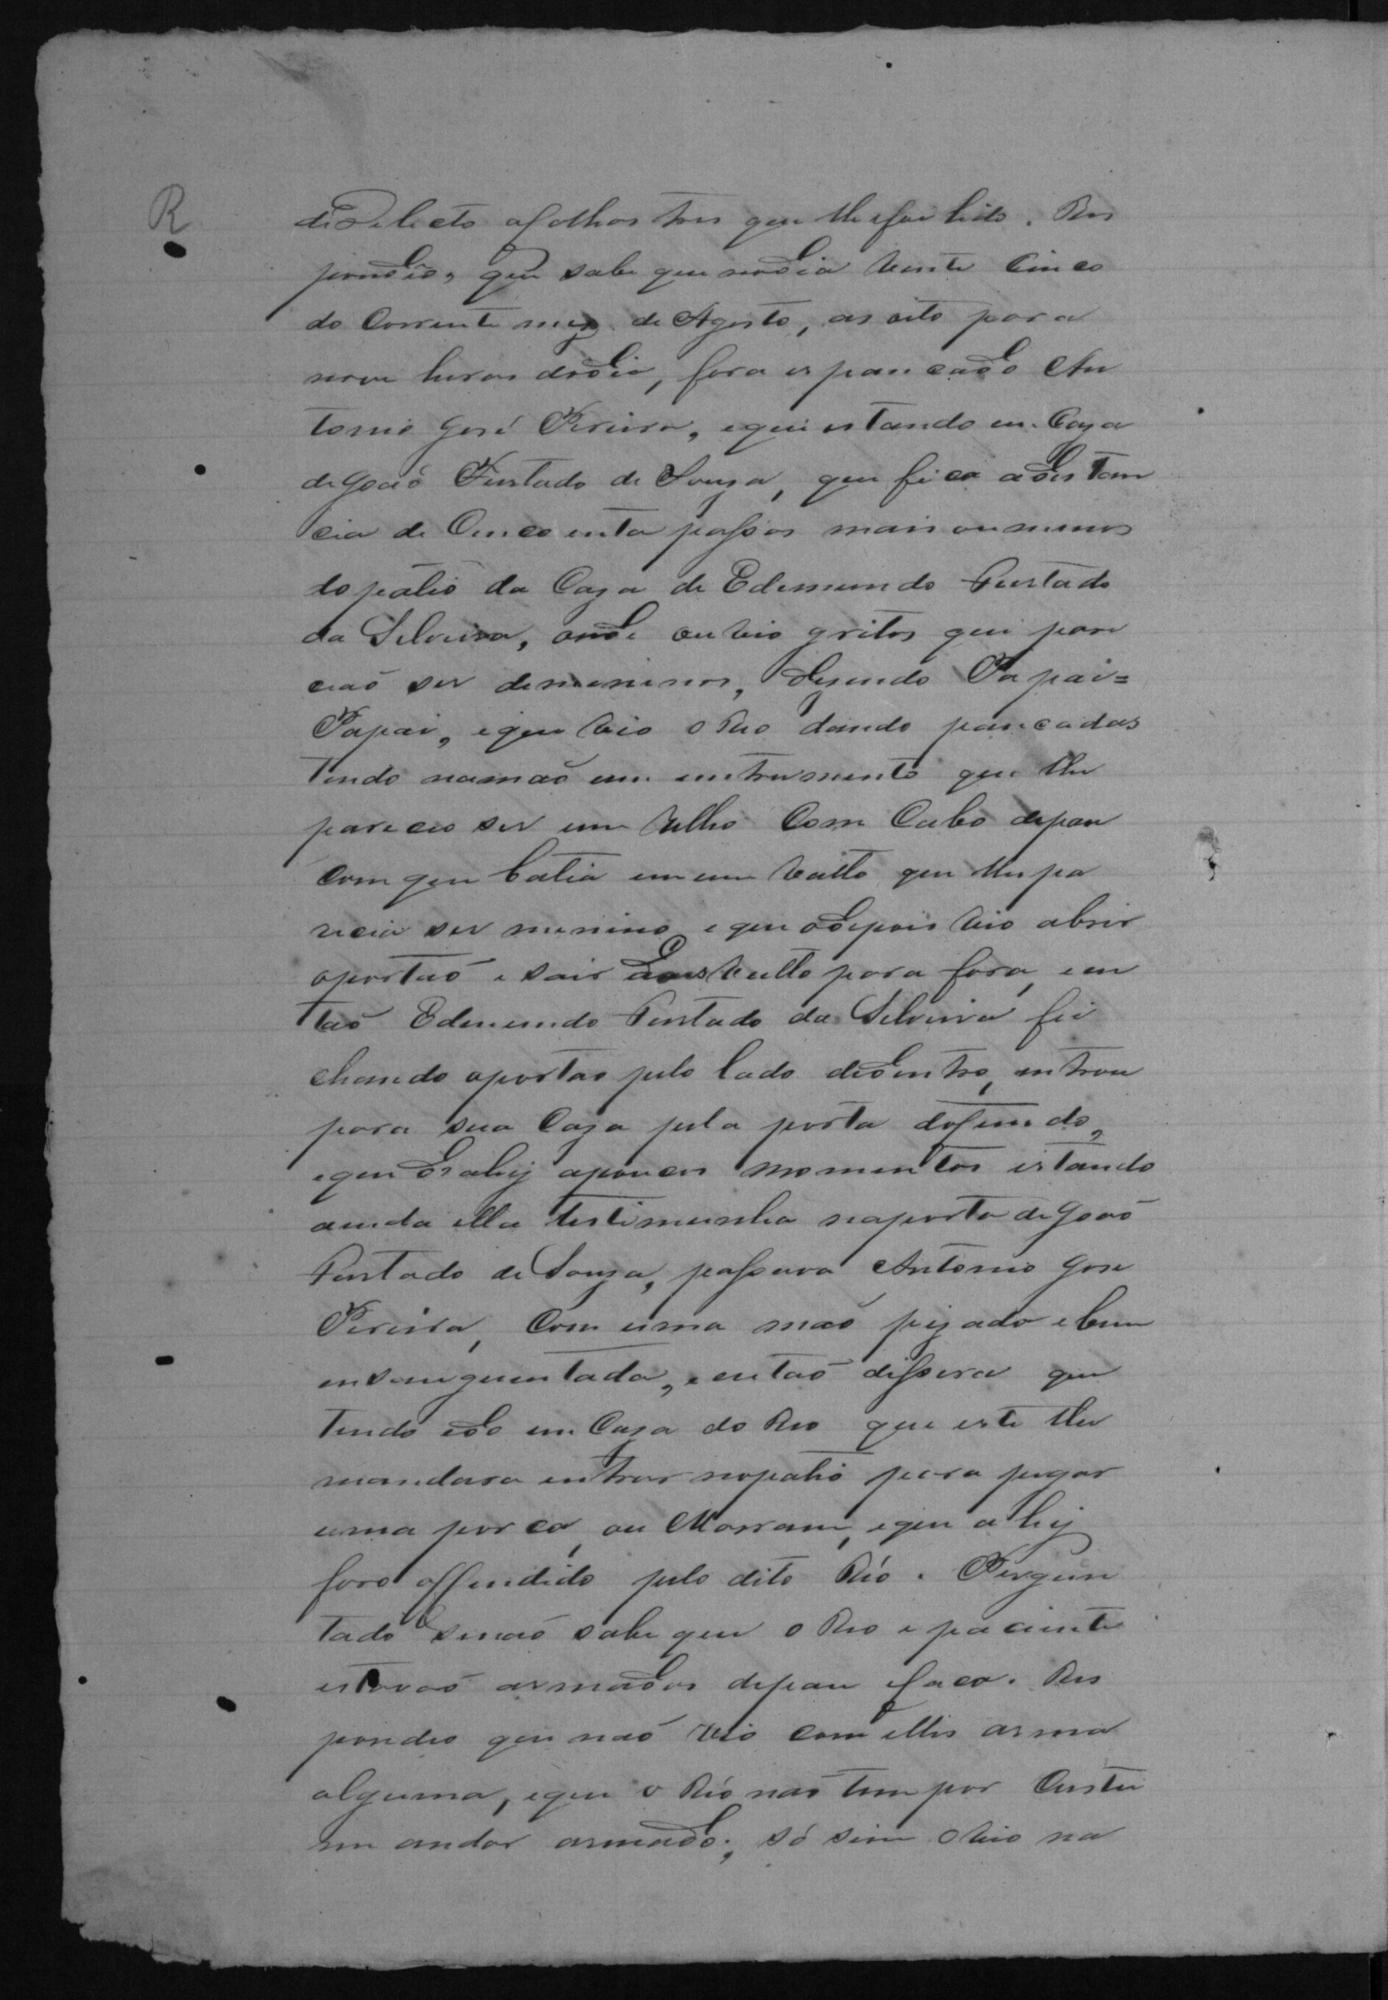 R
de Delicto a folhas tres que lhe foi lido. Res
pondeo, que sabe que no dia vinte Cinco
do Corrente mez de Agosto, as oito para
nove horas do dia, fora espancado An
tonio José Pereira, e que estando em Caza
de João Furtado de Souza, que fica a distan
cia de Cincoenta passos mais ou menos
do patio da Caza de Edemundo Furtado
da Silveira, onde ouvio gritos que pare
cião ser de meninos, dizendo Papai=
Papai, e que vio o Reo dando pancadas
tendo na mão um instrumento que lhe
pareceo ser um relho Com Cabo de pau
Com que batia em um vulto que lhe pa
recia ser menino e que depois vio abrir
o portão e sair vulto para fora, en
tão Edemundo Furtado da Silveira fei
chando o portão pelo lado de dentro, entrou
para sua Caza pela porta do fundo,
e que d'ahy a poucos momentos estando
ainda elle testimunha na porta de João
Furtado de Souza, passava Antonio José
Pereira, Com uma mão pizado e bem
ensanguentada, e então dissera que
tendo ido em Caza do Reo que este lhe
mandara entrar no patio para pegar
uma porca, ou Marram, e que ahy
fora offendido pelo dito Réo. Pergun
tado se não sabe que o Reo e paciente
estavão armados de pau e faca. Res
pondeo que não vio com elles arma
alguma, e que o Réo não tem por Custu
me andar armado; só sim o vio na